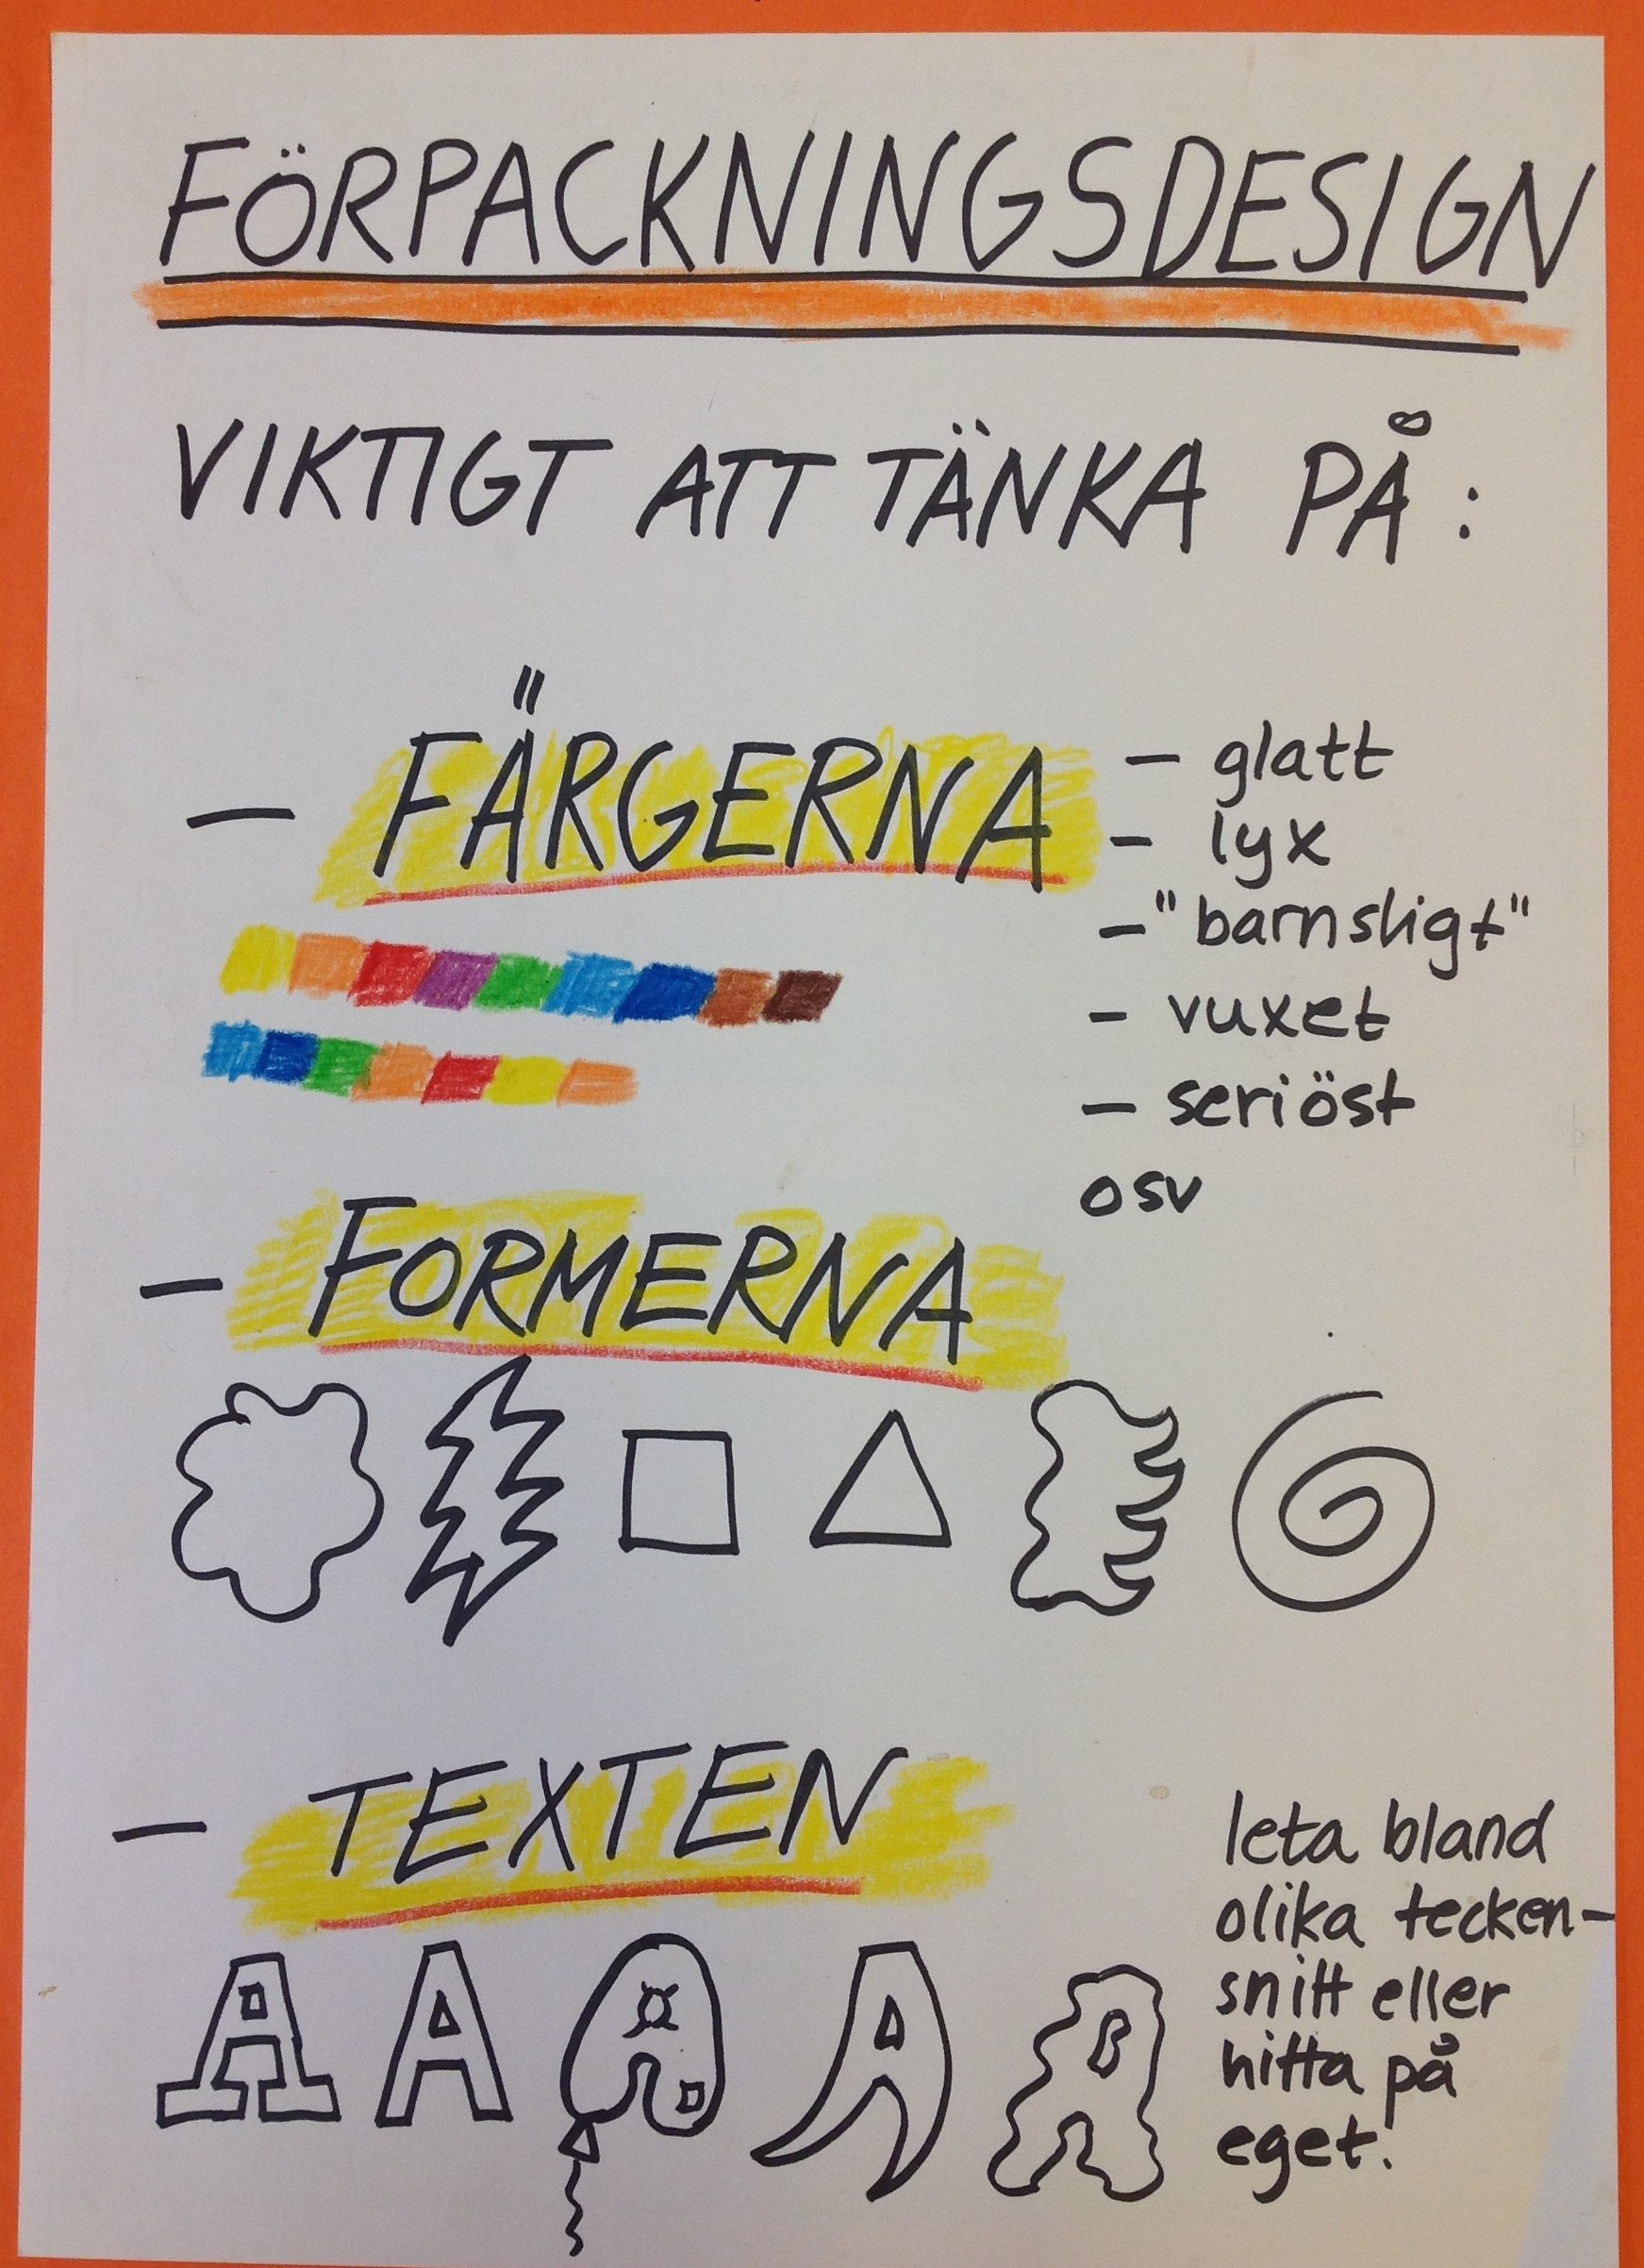 FÖRPACKNINGSDESIGN
VIKTIGT ATT TÄNKA PÅ:
- FÄRGERNA
- glatt
- lyx
- "barnsligt"
- vuxet
- seriöst
osv
- FORMERNA
- TEXTEN
A A A A A
leta bland
olika tecken-
snitt eller
hitta på
eget!